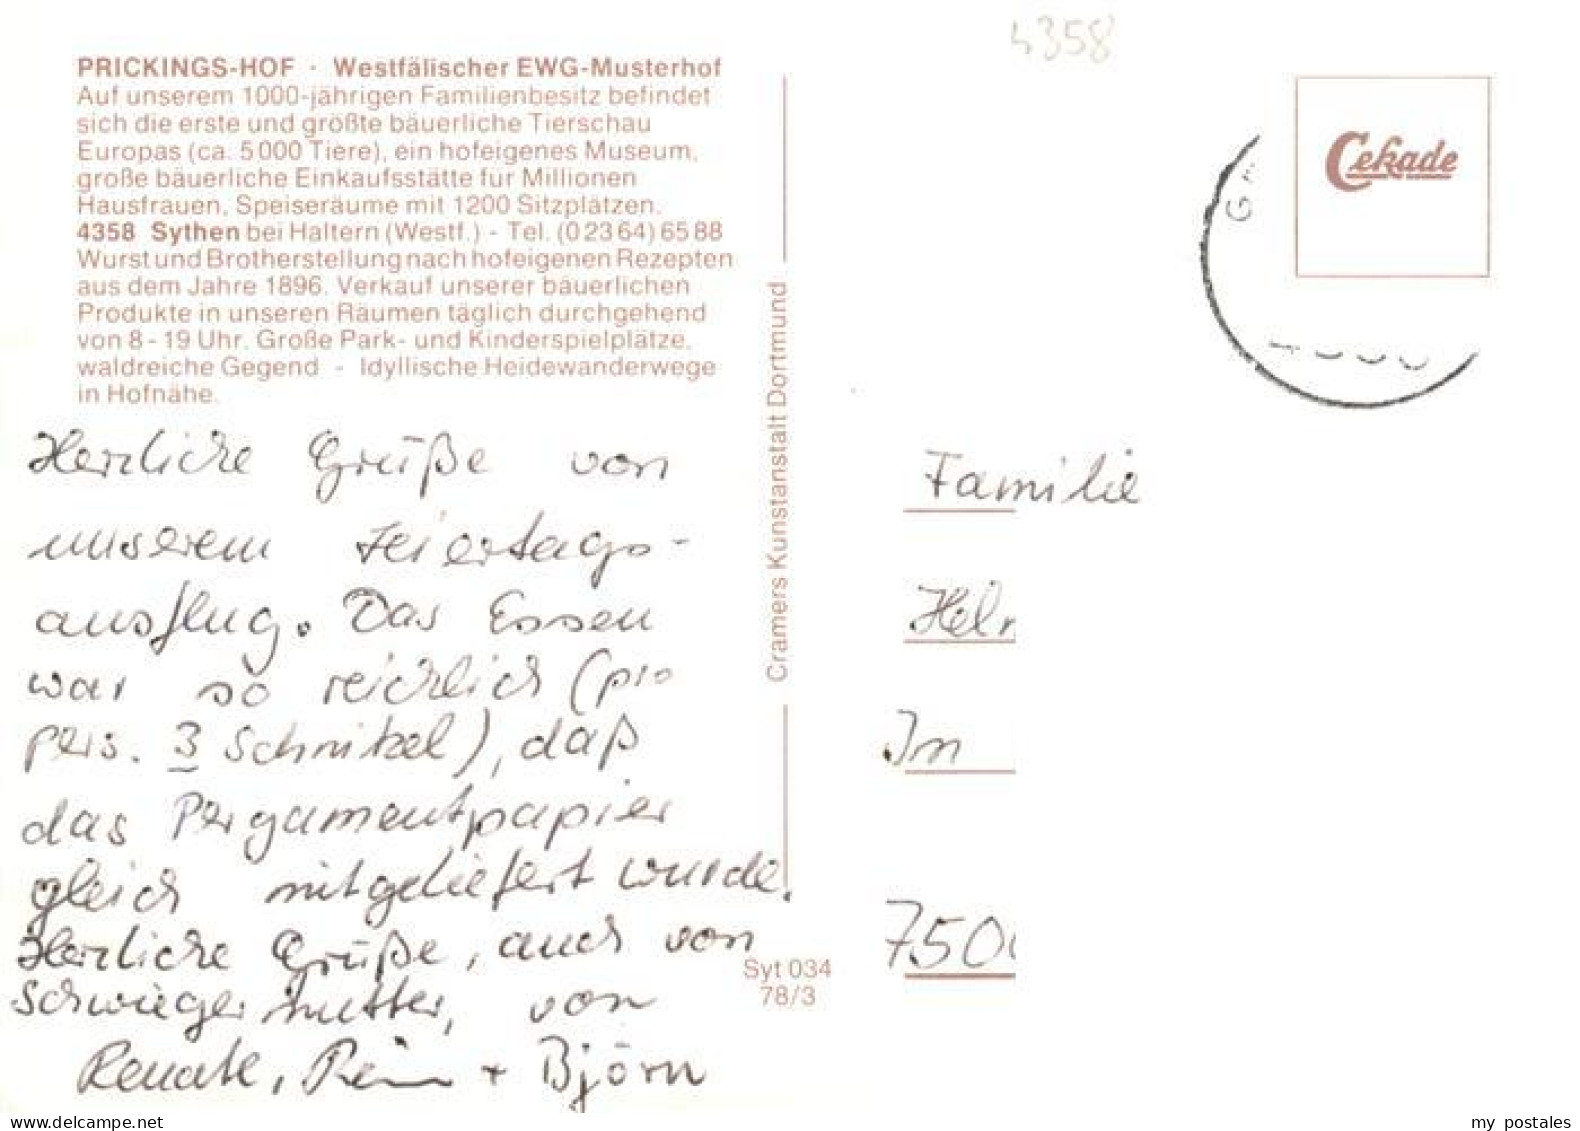 4358
PRICKINGS-HOF · Westfälischer EWG-Musterhof
Auf unserem 1000-jährigen Familienbesitz befindet
sich die erste und größte bäuerliche Tierschau
Europas (ca. 5000 Tiere), ein hofeigenes Museum,
große bäuerliche Einkaufsstätte für Millionen
Hausfrauen, Speiseräume mit 1200 Sitzplätzen.
4358 Sythen bei Haltern (Westf.) - Tel. (02364) 6588
Wurst und Brotherstellung nach hofeigenen Rezepten
aus dem Jahre 1896. Verkauf unserer bäuerlichen
Produkte in unseren Räumen täglich durchgehend
von 8 - 19 Uhr. Große Park- und Kinderspielplätze,
waldreiche Gegend - Idyllische Heidewanderwege
in Hofnähe.
Herzliche Grüße von
unserem Feiertags-
ausflug. Das Essen
war so reichlich (pro
Pers. 3 Schnitzel), daß
das Pergamentpapier
gleich mitgeliefert wurde.
Herzliche Grüße, auch von
Schwiegermutter, von
Renate, + Björn
Cramers Kunstanstalt Dortmund
Syt 034
78/3
Cekade
Familie
Hel
In
750
www.delcampe.net
my postales